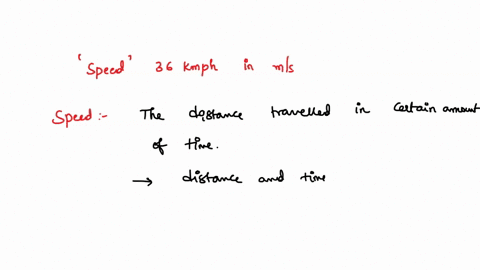 'Speed' 36 kmph in m/s
Speed:- The distance travelled in certain amount
of time.
→ distance and time